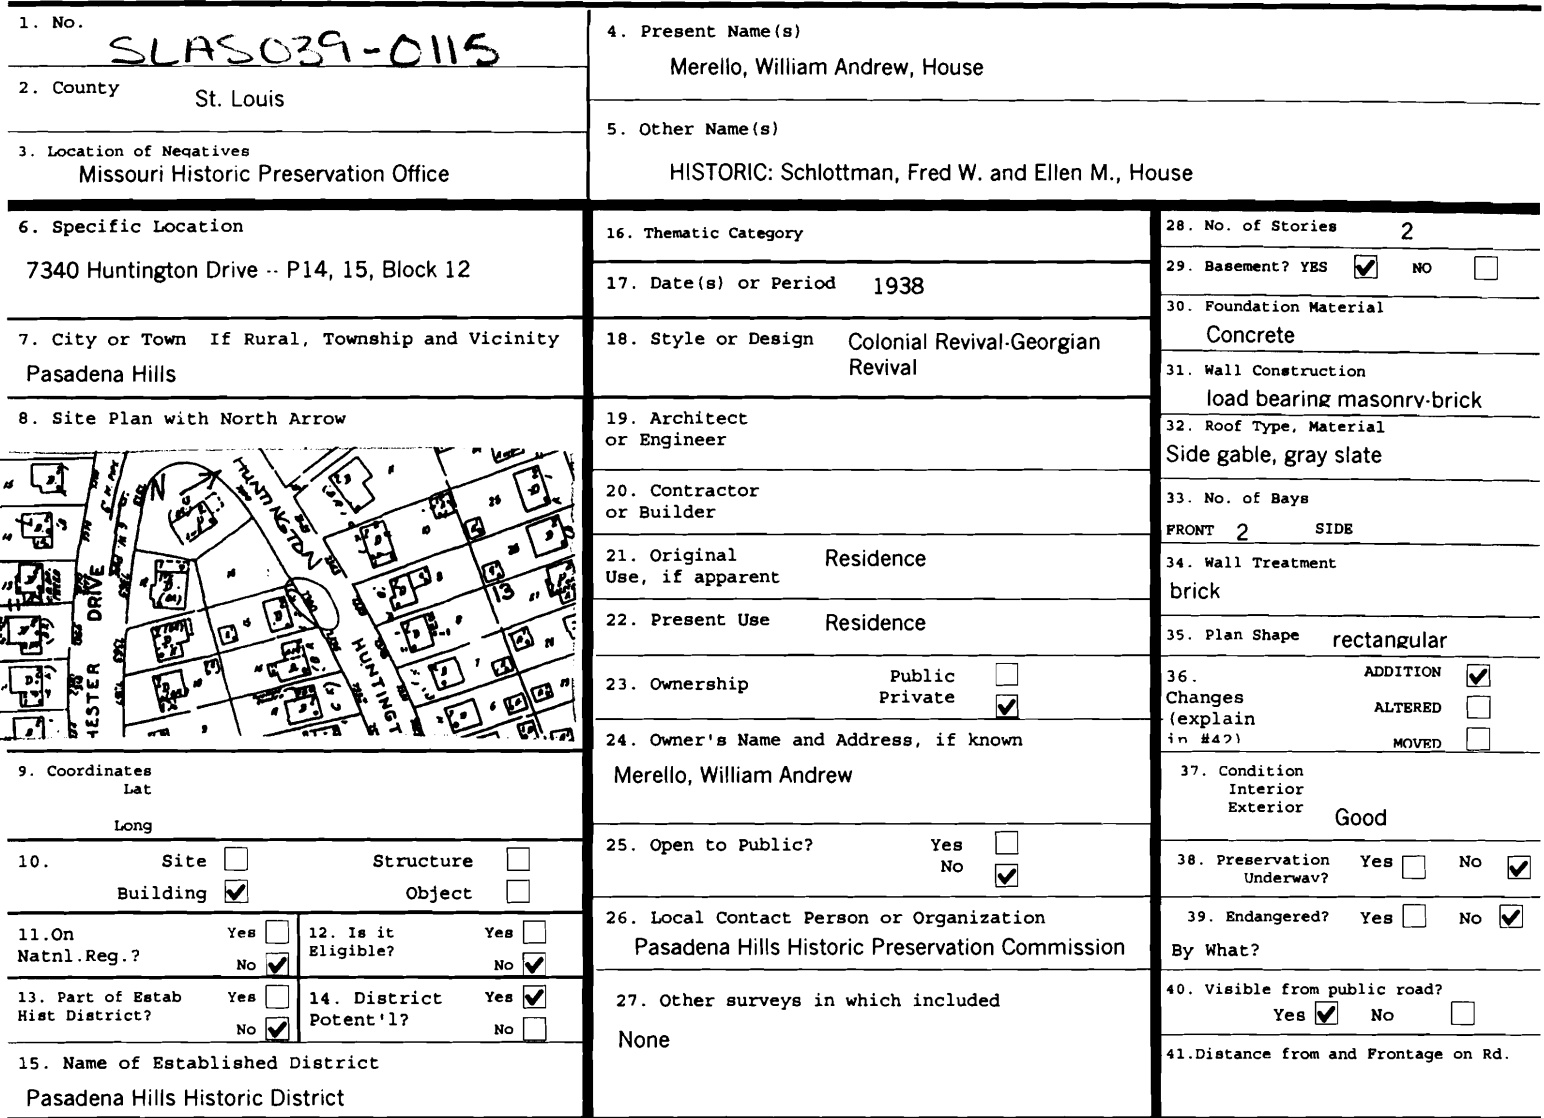 1. No.
SLAS039-0115
2. County
St. Louis
3. Location of Negatives
Missouri Historic Preservation Office
4. Present Name(s)
Merello, William Andrew, House
5. Other Name(s)
HISTORIC: Schlottman, Fred W. and Ellen M., House
6. Specific Location
7340 Huntington Drive -- P14, 15, Block 12
7. City or Town If Rural, Township and Vicinity
Pasadena Hills
8. Site Plan with North Arrow
N
HUNTINGTON
DRIVE
HESTER
HUNTINGT
13
9. Coordinates
Lat
Long
10. Site Structure
Building Object
11.On Yes
Natnl.Reg.? No
12. Is it Yes
Eligible? No
13. Part of Estab Yes
Hist District? No
14. District Yes
Potent'l? No
15. Name of Established District
Pasadena Hills Historic District
16. Thematic Category
17. Date(s) or Period 1938
18. Style or Design Colonial Revival-Georgian
Revival
19. Architect
or Engineer
20. Contractor
or Builder
21. Original Residence
Use, if apparent
22. Present Use Residence
23. Ownership Public
Private
24. Owner's Name and Address, if known
Merello, William Andrew
25. Open to Public? Yes
No
26. Local Contact Person or Organization
Pasadena Hills Historic Preservation Commission
27. Other surveys in which included
None
28. No. of Stories 2
29. Basement? YES NO
30. Foundation Material
Concrete
31. Wall Construction
load bearing masonry-brick
32. Roof Type, Material
Side gable, gray slate
33. No. of Bays
FRONT 2 SIDE
34. Wall Treatment
brick
35. Plan Shape rectangular
36. ADDITION
Changes
(explain ALTERED
in #42) MOVED
37. Condition
Interior
Exterior Good
38. Preservation Yes No
Underway?
39. Endangered? Yes No
By What?
40. Visible from public road?
Yes No
41.Distance from and Frontage on Rd.